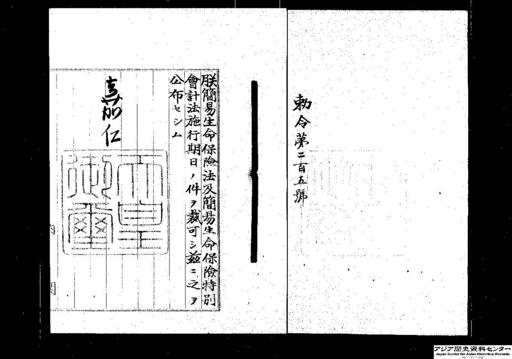 勅令第二百五號
朕簡易生命保險法及簡易生命保險特別
會計法施行期日ノ件ヲ裁可シ茲ニ之ヲ
公布セシム
嘉仁
天皇
御璽
アジア歴史資料センター
Japan Center for Asian Historical Records